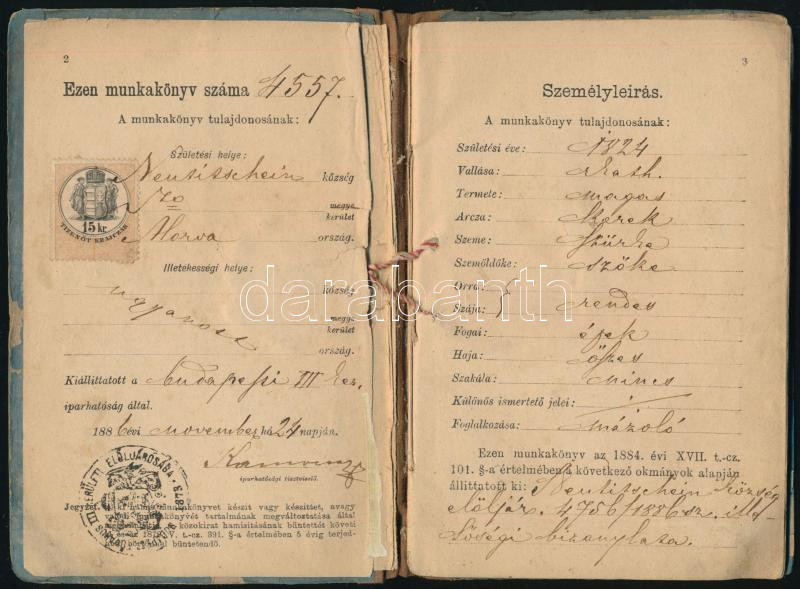 2
Ezen munkakönyv száma 4557.
A munkakönyv tulajdonosának:
Születési helye:
Neutitschein község
megye
kerület
Morva ország.
15 kr.
TIZENÖT KRAJCZÁR
Illetékességi helye:
ugyanott község
megye
kerület
ország.
Kiállittatott a budapesti III ker.
iparhatóság által.
1886 évi november hó 24 napján.
iparhatósági tisztviselő.
Jegyzet.
munkakönyvet készit vagy készittet, avagy
munkakönyvét tartalmának megváltoztatása által
közokirat hamisitásának büntettét követi
V. t.-cz. 391. §-a értelmében 5 évig terjed-
börtönnel büntetendő.
3
Személyleirás.
A munkakönyv tulajdonosának:
Születési éve: 1824
Vallása: kath.
Termete: magas
Arcza: kerek
Szeme: szürke
Szemöldöke: szőke
Orra:
Szája: rendes
Fogai: épek
Haja: őszes
Szakála: nincs
Különös ismertető jelei: /
Foglalkozása: mázoló
Ezen munkakönyv az 1884. évi XVII. t.-cz.
101. §-a értelmében a következő okmányok alapján
állittatott ki: Neutitschein község
elöljár. 4756/1886 sz. illet
őségi bizonylata.
darabanth